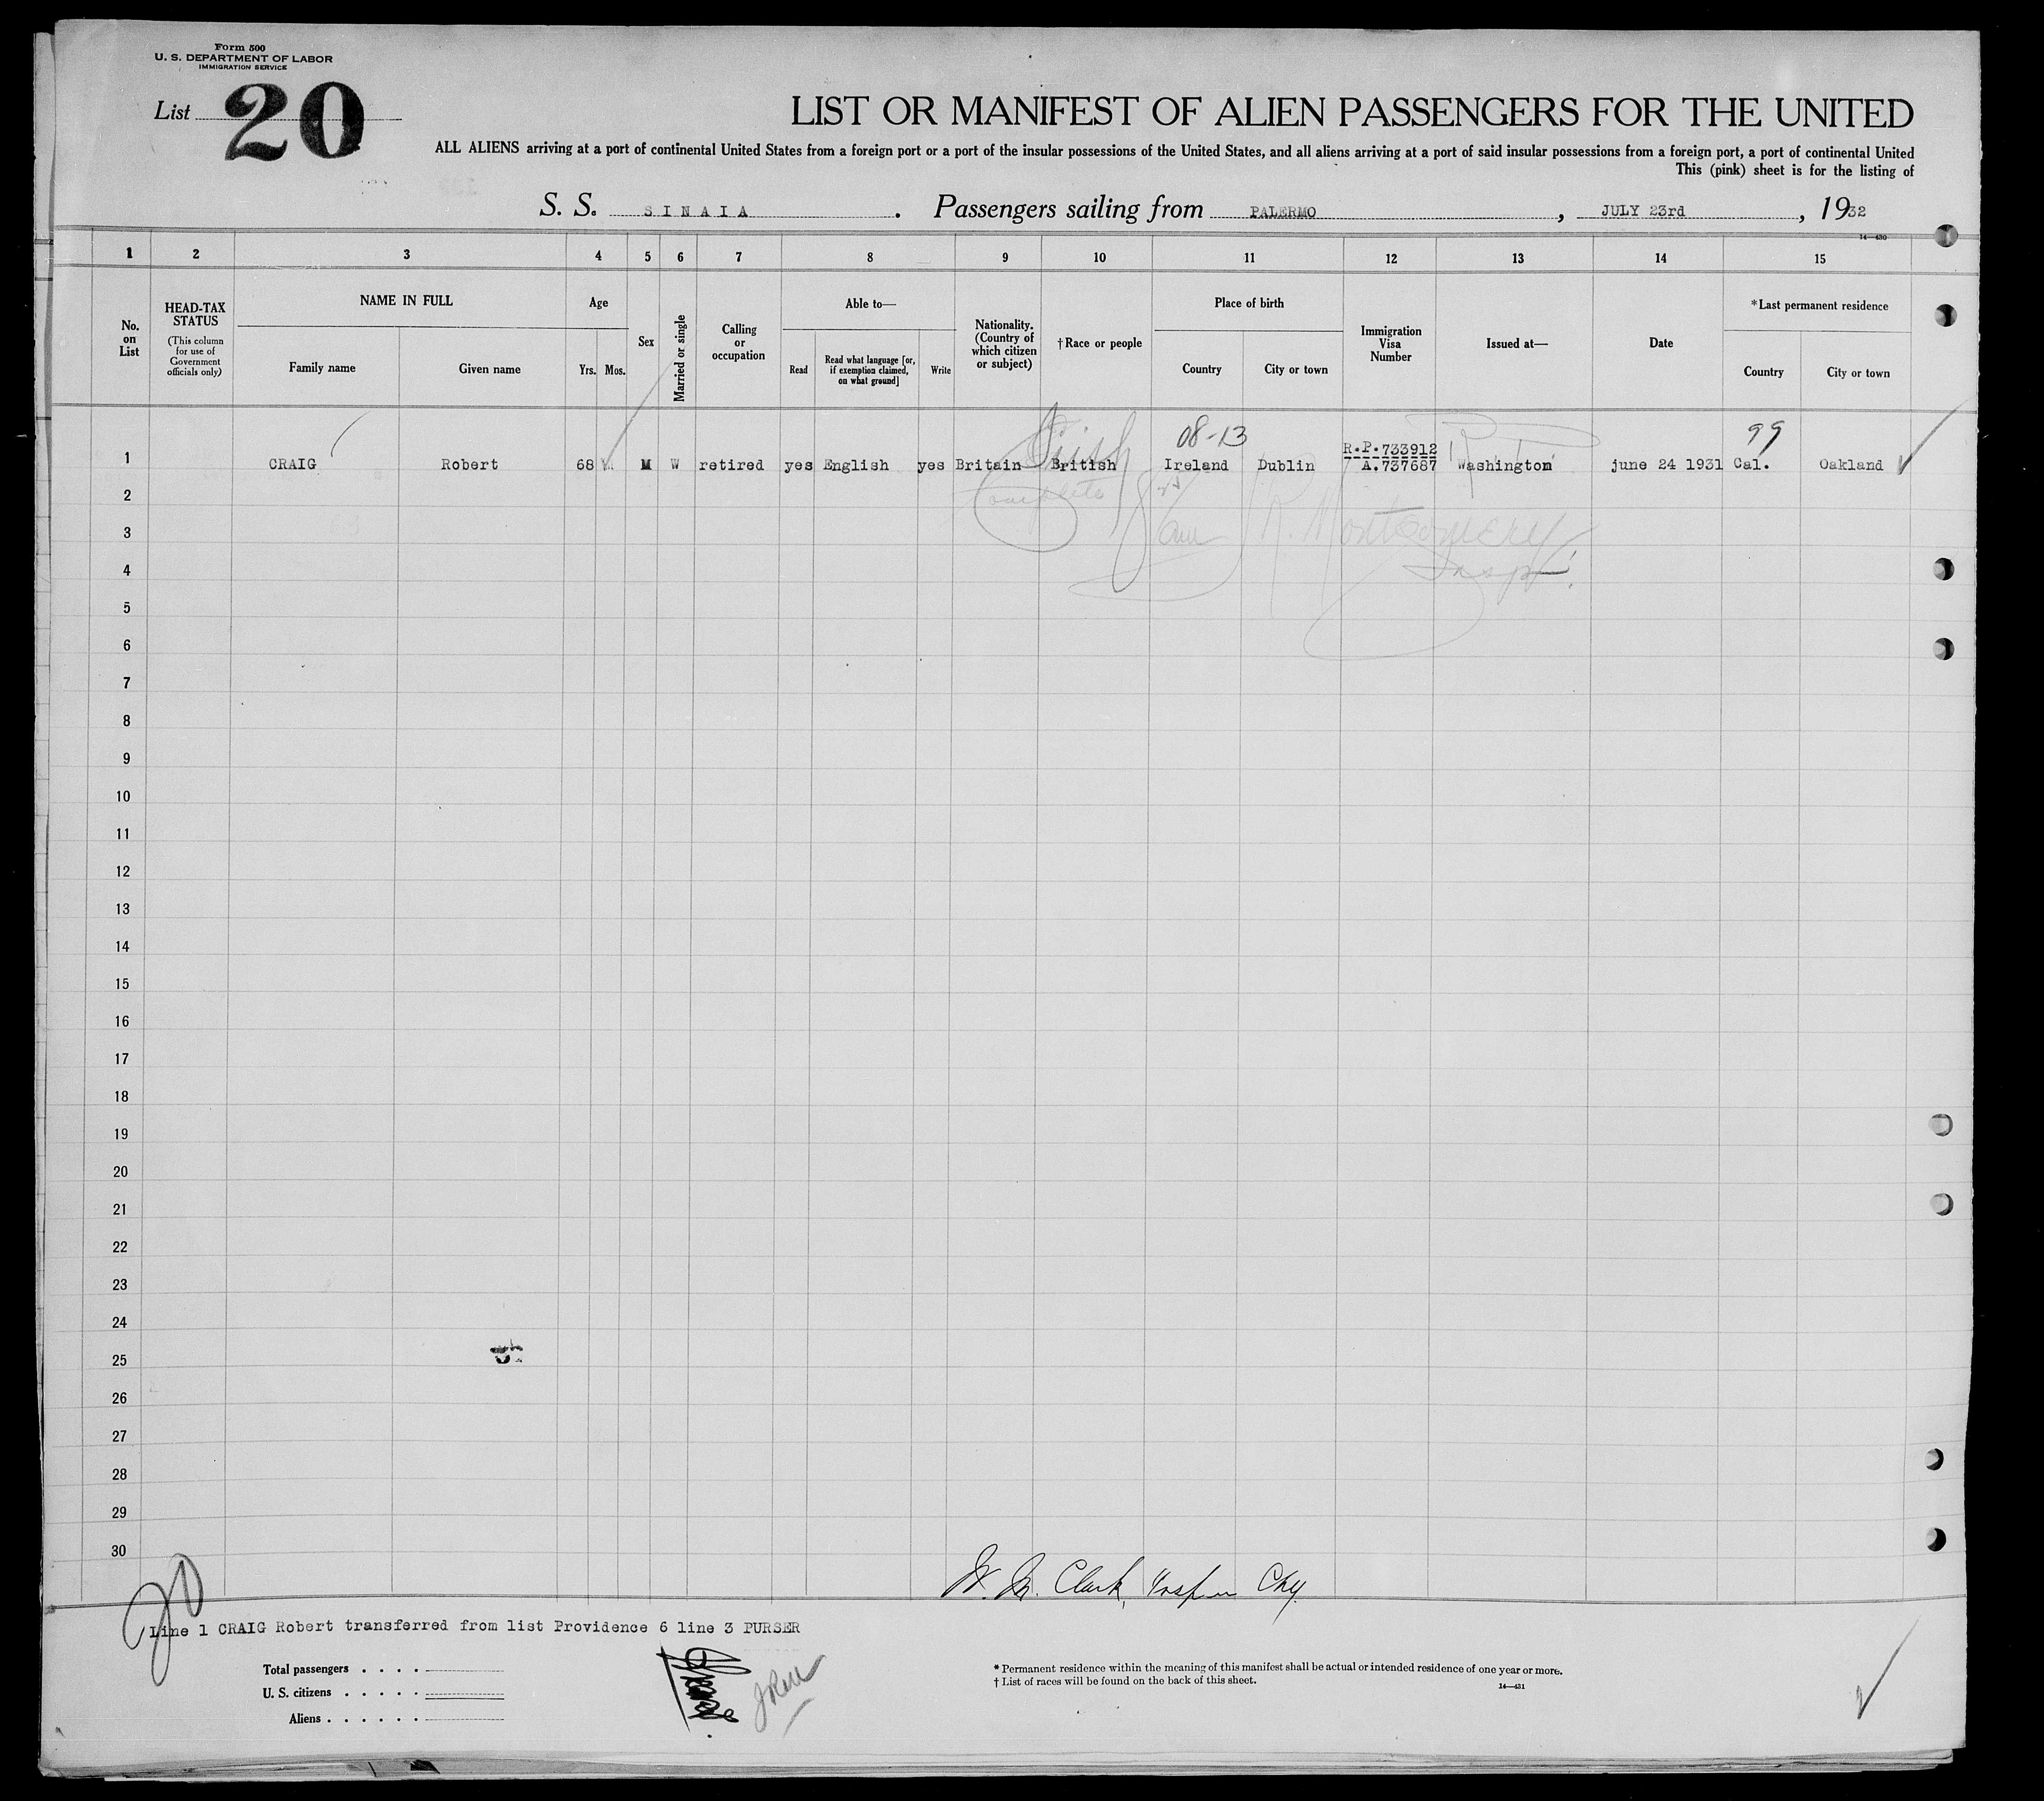 Form 500
U. S. DEPARTMENT OF LABOR
IMMIGRATION SERVICE
List 20
LIST OR MANIFEST OF ALIEN PASSENGERS FOR THE UNITED
ALL ALIENS arriving at a port of continental United States from a foreign port or a port of the insular possessions of the United States, and all aliens arriving at a port of said insular possessions from a foreign port, a port of continental United
This (pink) sheet is for the listing of
S. S. SINAIA. Passengers sailing from PALERMO, JULY 23rd, 1932
14—430
1 2 3 4 5 6 7 8 9 10 11 12 13 14 15
No. on List
HEAD-TAX STATUS
(This column for use of Government officials only)
NAME IN FULL
Family name Given name
Age
Yrs. Mos.
Sex
Married or single
Calling or occupation
Able to—
Read
Read what language [or, if exemption claimed, on what ground]
Write
Nationality. (Country of which citizen or subject)
† Race or people
Place of birth
Country City or town
Immigration Visa Number
Issued at—
Date
* Last permanent residence
Country City or town
Irish 08-13 99
R.P.733912
1 CRAIG Robert 68 M W retired yes English yes Britain British Ireland Dublin A.737687 Washington june 24 1931 Cal. Oakland
2
3 R. Montgomery
4 Insp.
5
6
7
8
9
10
11
12
13
14
15
16
17
18
19
20
21
22
23
24
25
26
27
28
29
30
Clark,
20
Line 1 CRAIG Robert transferred from list Providence 6 line 3 PURSER
Total passengers . . . .
U. S. citizens . . . . .
Aliens . . . . . .
* Permanent residence within the meaning of this manifest shall be actual or intended residence of one year or more.
† List of races will be found on the back of this sheet.
14—431